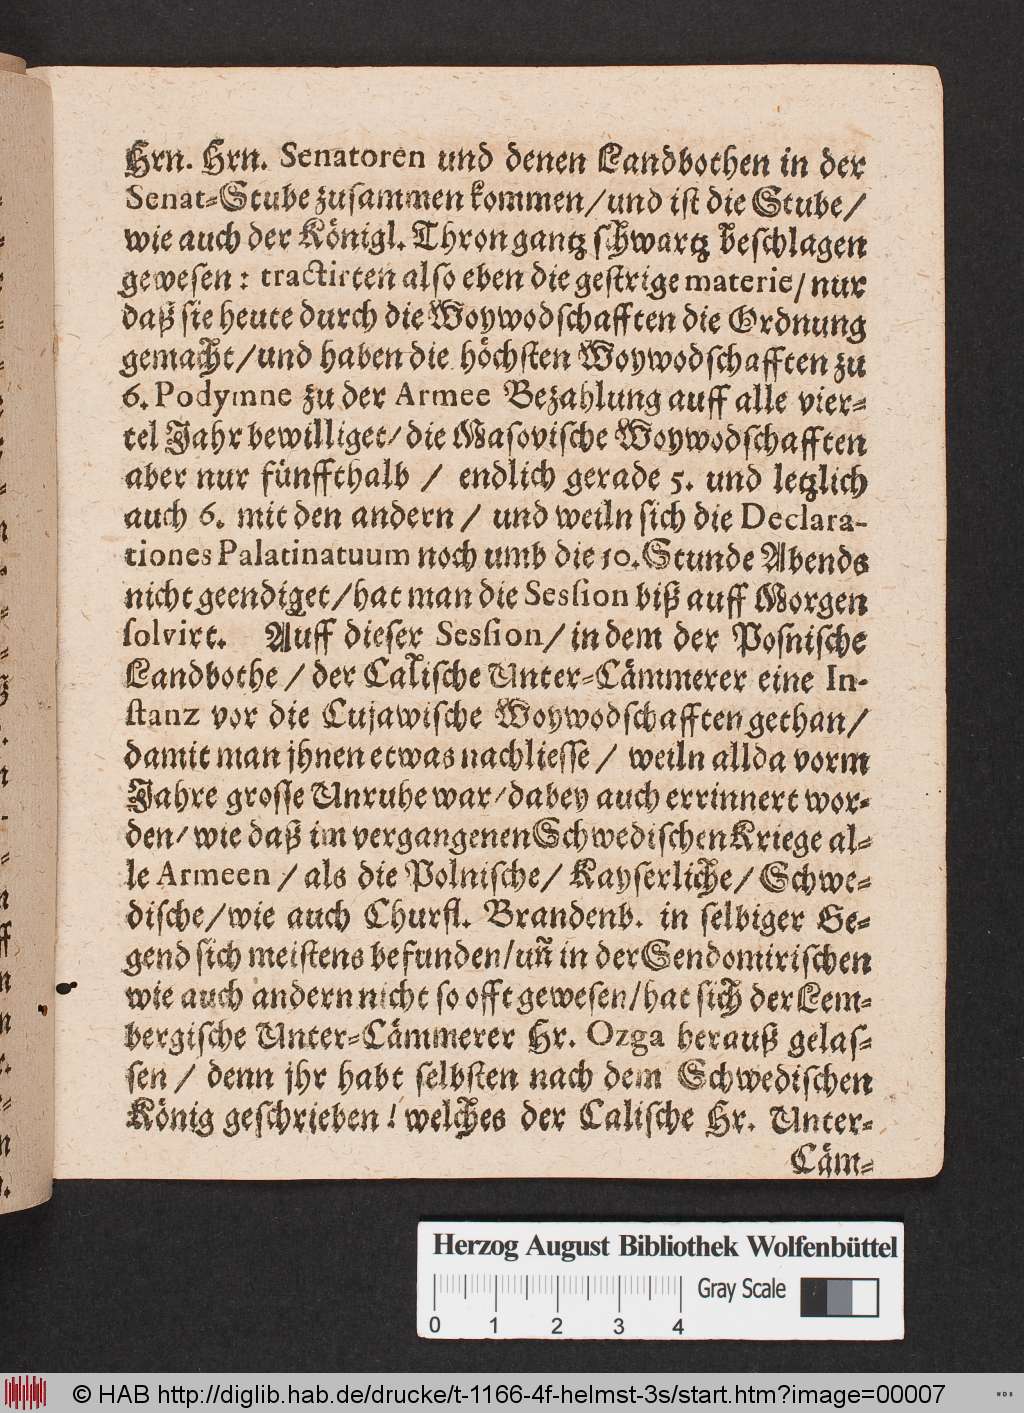 Hrn. Hrn. Senatoren und denen Landbothen in der
Senat-Stube zusammen kommen/und ist die Stube/
wie auch der Königl. Thron gantz schwartz beschlagen
gewesen: tractirten also eben die gestrige materie/ nur
daß sie heute durch die Woywodschafften die Ordnung
gemacht/und haben die höchsten Woywodschafften zu
6. Podymne zu der Armee Bezahlung auff alle vier-
tel Jahr bewilliget/ die Masovische Woywodschafften
aber nur fünffthalb / endlich gerade 5. und letzlich
auch 6. mit den andern / und weiln sich die Declara-
tiones Palatinatuum noch umb die 10. Stunde Abends
nicht geendiget/hat man die Session biß auff Morgen
solvirt. Auff dieser Session/ in dem der Posnische
Landbothe / der Calische Unter-Cämmerer eine In-
stanz vor die Cujawische Woywodschafften gethan/
damit man jhnen etwas nachliesse / weiln allda vorm
Jahre grosse Unruhe war/dabey auch errinnert wor-
den/ wie daß im vergangenen Schwedischen Kriege al-
le Armeen / als die Polnische/ Kayserliche/ Schwe-
dische/wie auch Churfl. Brandenb. in selbiger Ge-
gend sich meistens befunden/uñ in der Sendomirischen
wie auch andern nicht so offt gewesen/hat sich der Lem-
bergische Unter-Cämmerer Hr. Ozga herauß gelas-
sen / denn jhr habt selbsten nach dem Schwedischen
König geschrieben! welches der Calische Hr. Unter-
Cäm-
Herzog August Bibliothek Wolfenbüttel
Gray Scale
0 1 2 3 4
© HAB http://diglib.hab.de/drucke/t-1166-4f-helmst-3s/start.htm?image=00007